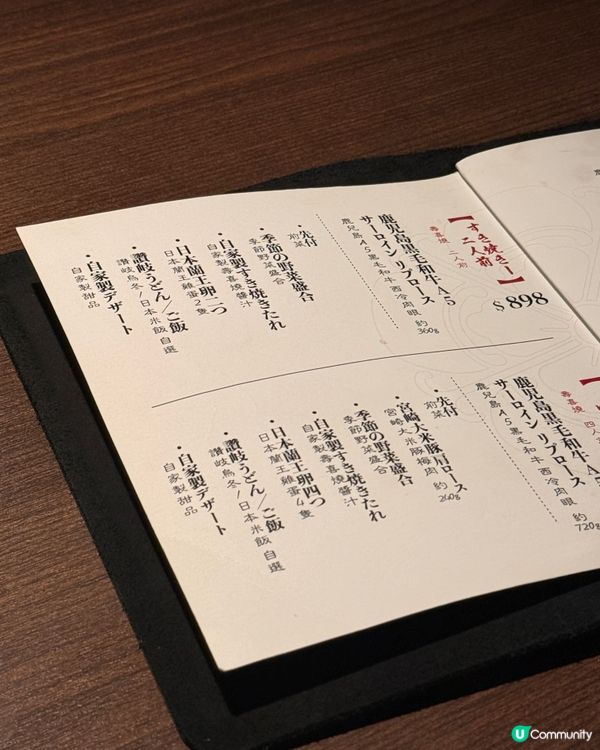 【すき焼き一二人前】
壽喜燒 二人前
$898
鹿児島黒毛和牛A5
サーロイン リブロース
鹿兒島A5黒毛和牛西冷肉眼 約360g
・先付
前菜
・季節の野菜盛合
季節野菜盛合
・自家製すき焼きたれ
自家製壽喜燒醬汁
・日本蘭王卵二つ
日本蘭王雞蛋2隻
・讃岐うどん/ご飯
讃岐烏冬/日本米飯自選
・自家製デザート
自家製甜品
壽喜燒 四
鹿児島黒毛和牛A5
サーロイン リブロース
鹿兒島A5黒毛和牛西冷肉眼 約720g
・先付
前菜
・宮崎大米豚肩ロース
宮崎大米豚梅肉 約260g
・季節の野菜盛合
季節野菜盛合
・自家製すき焼きたれ
自家製壽喜燒醬汁
・日本蘭王卵四つ
日本蘭王雞蛋4隻
・讃岐うどん/ご飯
讃岐烏冬/日本米飯自選
・自家製デザート
自家製甜品
U Community